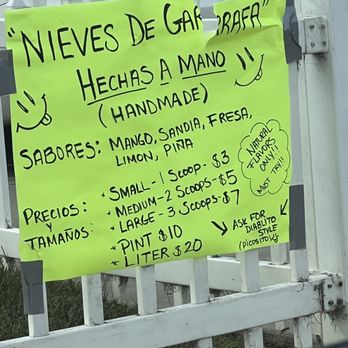 "NIEVES DE GARRAFA"
HECHAS A MANO
(HANDMADE)
SABORES: MANGO, SANDIA, FRESA,
LIMON, PIÑA
NATURAL
FLAVORS
ONLY!!
MUST TRY!!
PRECIOS:
Y
TAMAÑOS:
* SMALL - 1 SCOOP - $3
* MEDIUM - 2 SCOOPS - $5
* LARGE - 3 SCOOPS - $7
* PINT $10
* LITER $20
ASK FOR
DIABLITO
STYLE
(PICOSITO)